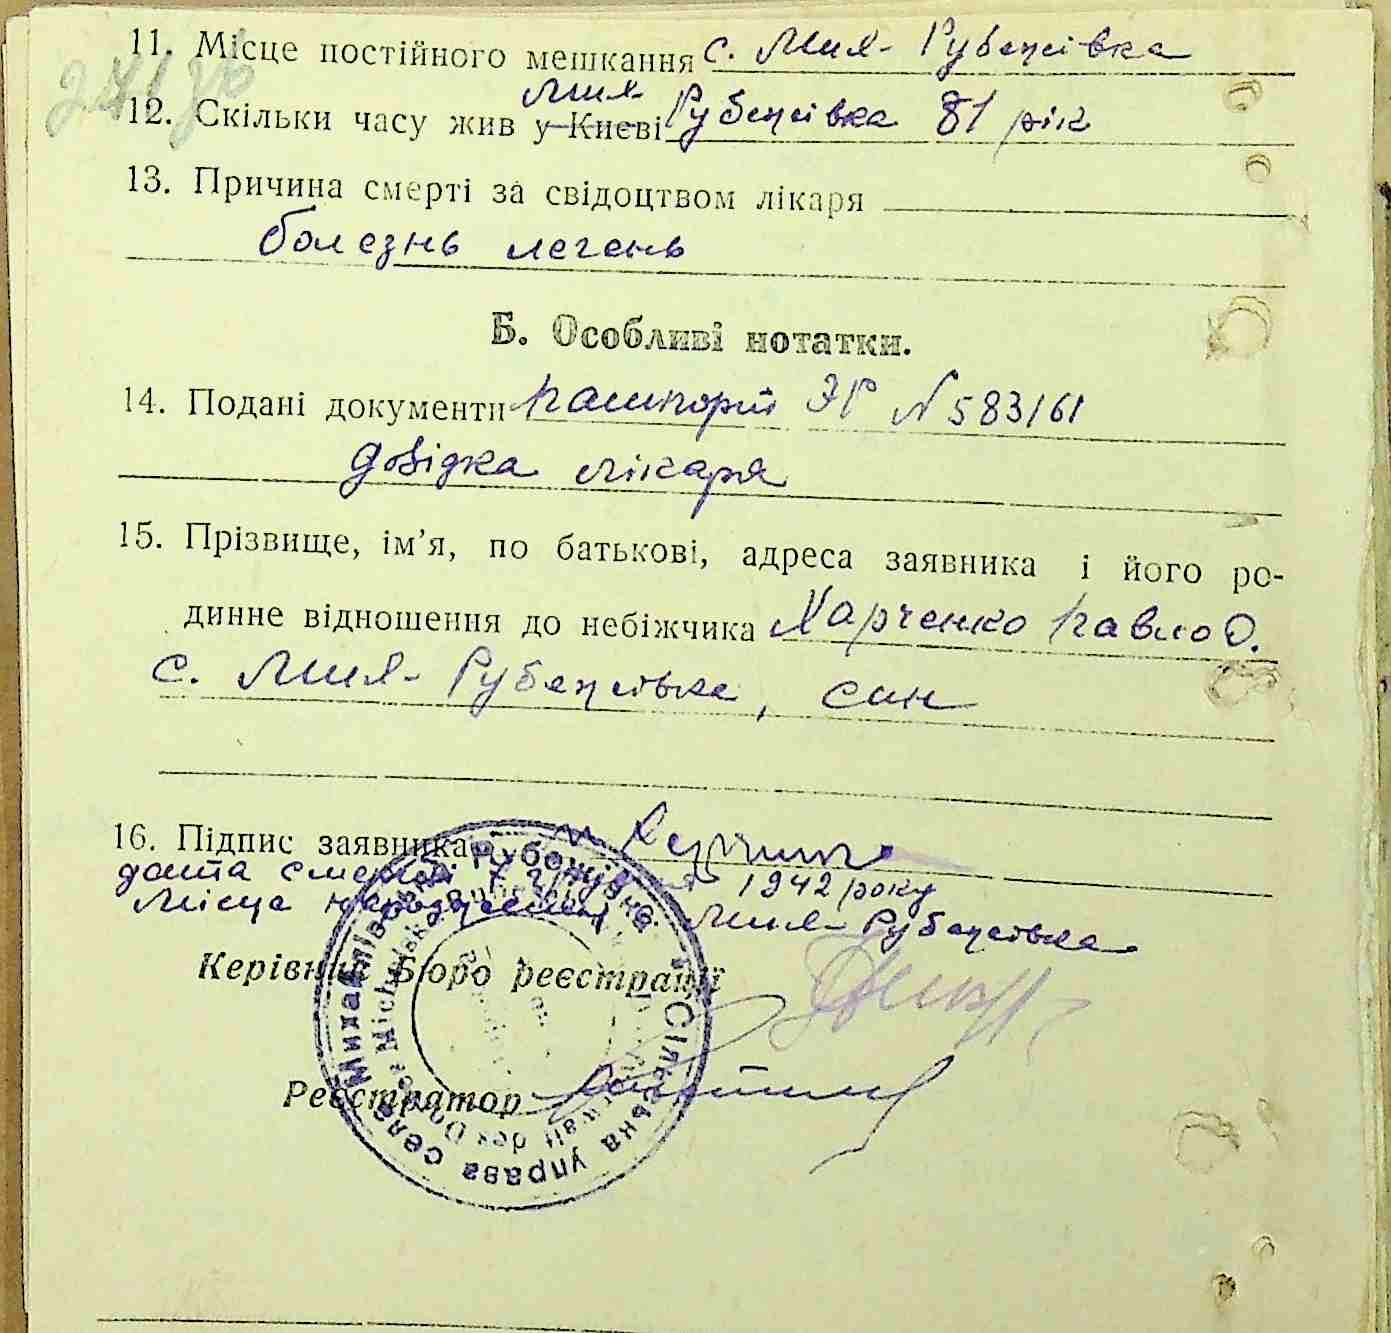 11. Місце постійного мешкання с. Мих- Рубежівка
Мих-
12. Скільки часу жив у Києві Рубежівка 81 рік
13. Причина смерті за свідоцтвом лікаря
болезнь легень
Б. Особливі нотатки.
14. Подані документи пашпорт ЭР № 583161
довідка лікаря
15. Прізвище, ім’я, по батькові, адреса заявника і його ро-
динне відношення до небіжчика Харченко Павло О.
с. Мих- Рубежівка, син
16. Підпис заявника
дата смерті 1942 року
Місце народження Мих- Рубежівка
Керівник Бюро реєстрації
Реєстратор
Сільська управа села Михайлівська Рубежівка